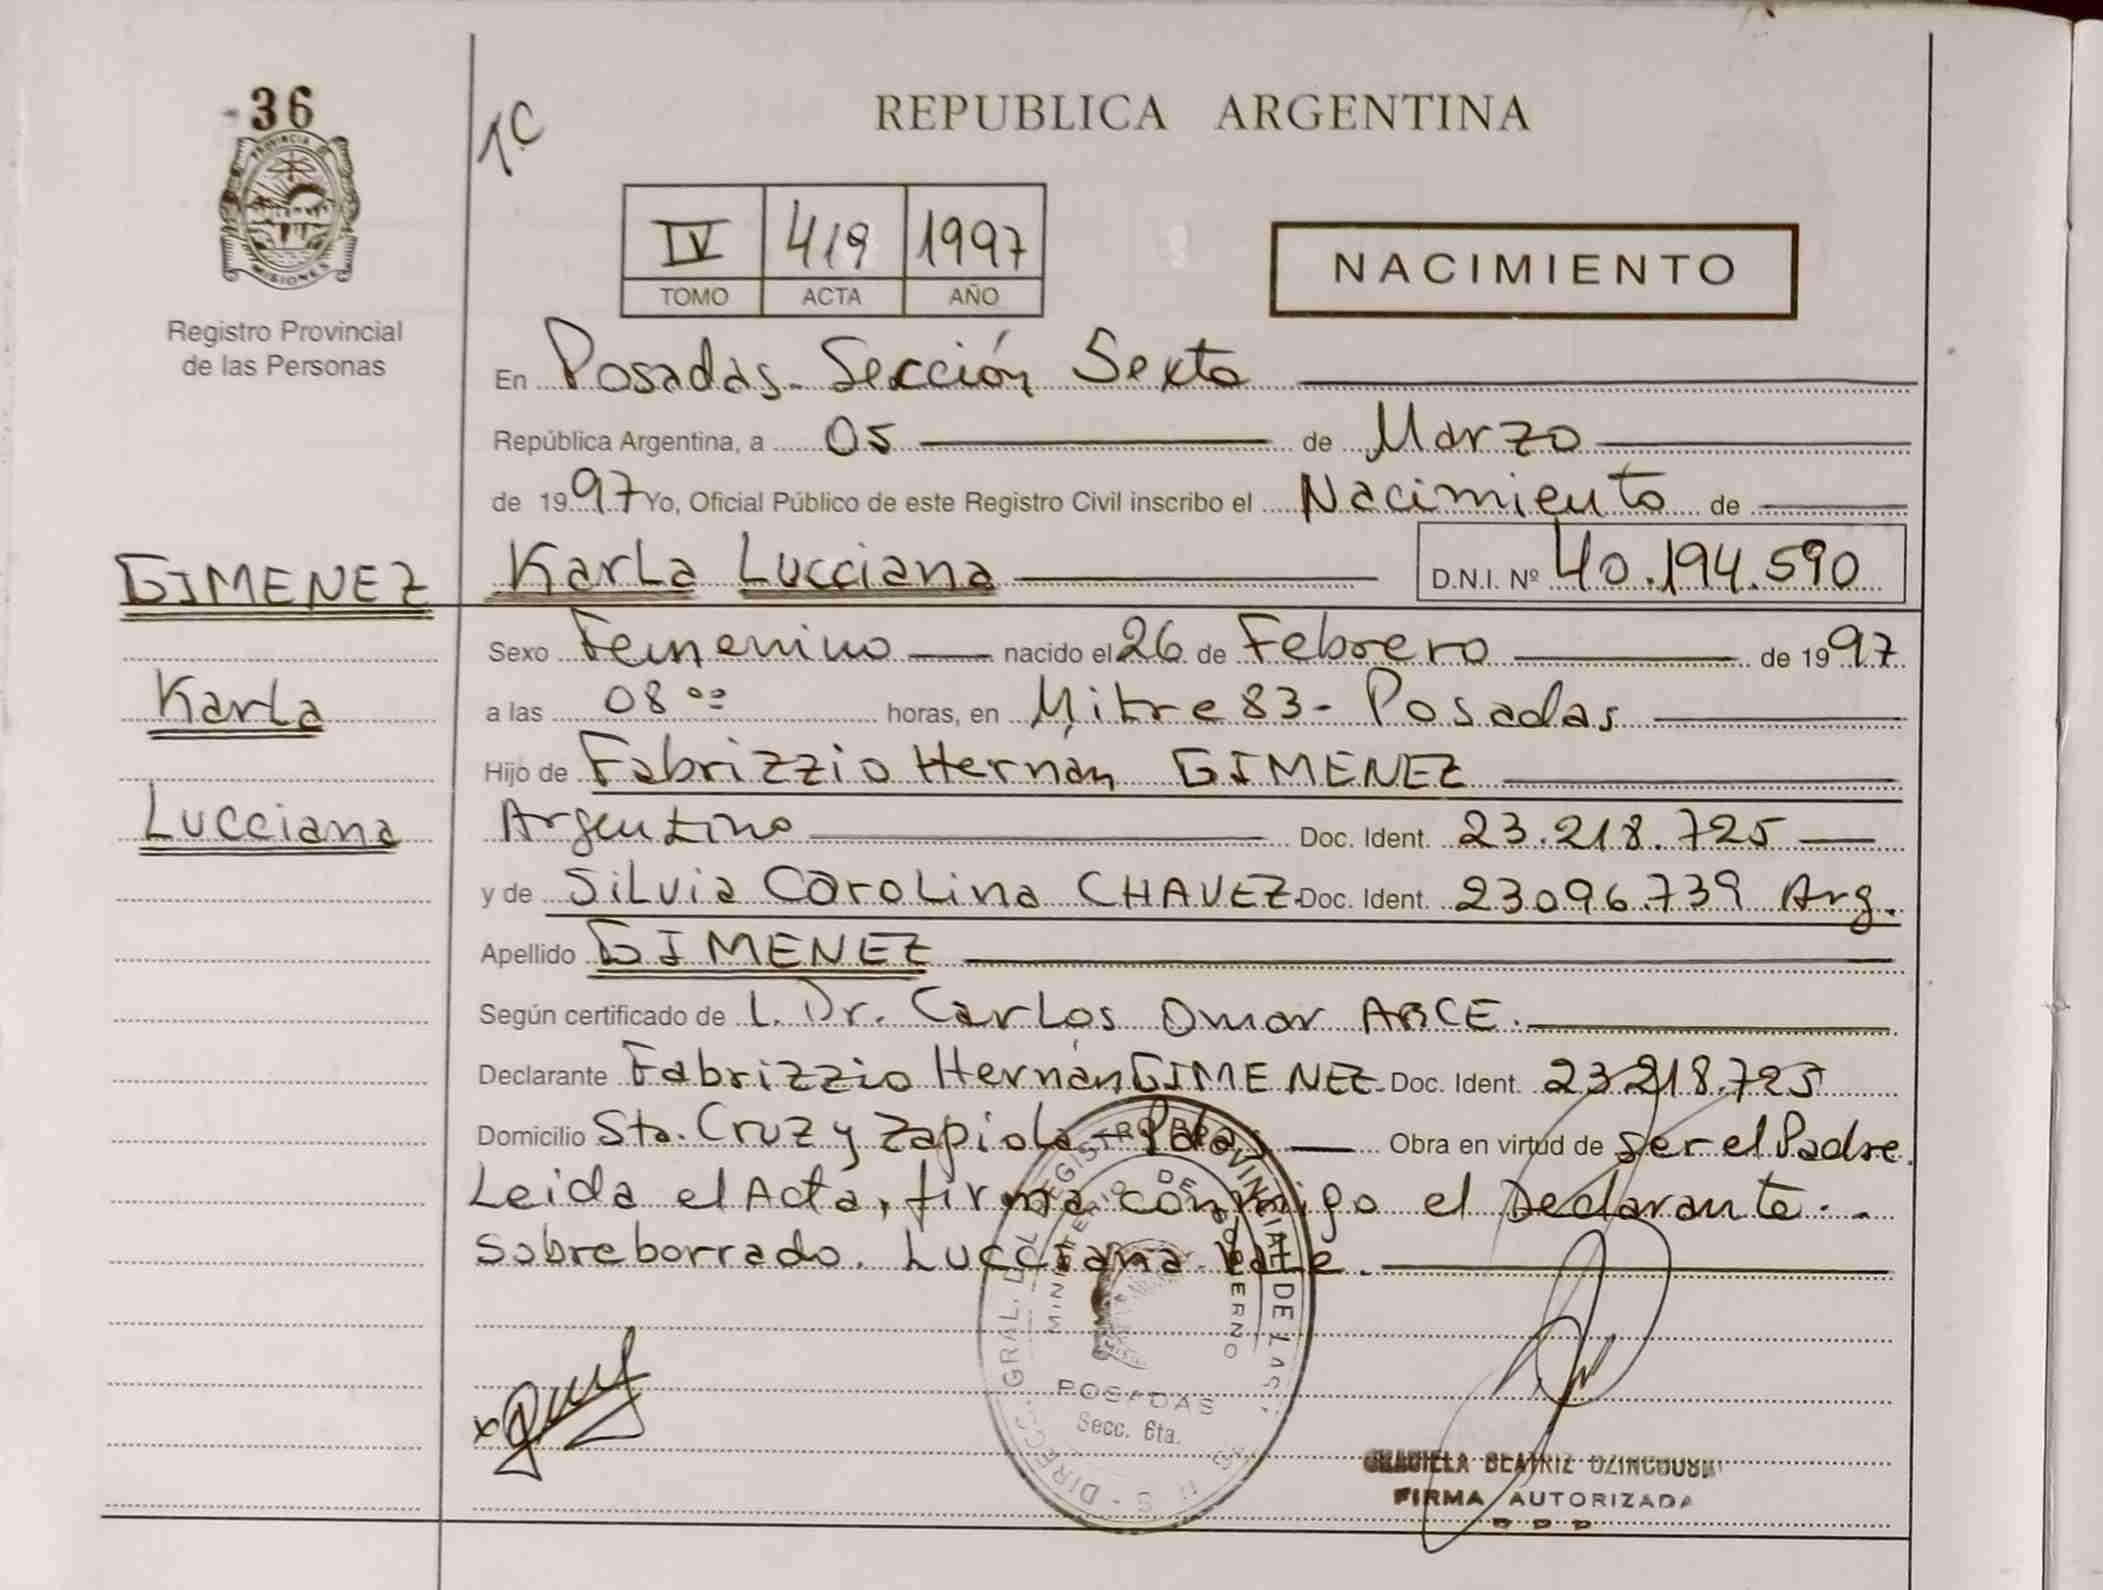 36
PROVINCIA DE
MISIONES
Registro Provincial
de las Personas
1C
REPUBLICA ARGENTINA
IV 419 1997
TOMO ACTA AÑO
NACIMIENTO
En Posadas - Sección Sexta
República Argentina, a 05 de Marzo
de 1997 Yo, Oficial Público de este Registro Civil inscribo el Nacimiento de
GIMENEZ Karla Lucciana D.N.I. Nº 40.194.590
Sexo Femenino nacido el 26 de Febrero de 1997
Karla a las 08 00 horas, en Mitre 83 - Posadas
Hijo de Fabrizzio Hernán GIMENEZ
Lucciana Argentino Doc. Ident. 23.218.725
y de Silvia Carolina CHAVEZ Doc. Ident. 23096.739 Arg.
Apellido GIMENEZ
Según certificado de L. Dr. Carlos Omar ARCE.
Declarante Fabrizzio Hernán GIMENEZ Doc. Ident. 23.218.725
Domicilio Sta. Cruz y Zapiola - Pdas Obra en virtud de ser el Padre.
Leida el Acta, firma conmigo el Declarante. -
Sobreborrado. Lucciana. Vale.
MINISTERIO DE GOBIERNO
POSADAS
Secc. 6ta.
x
BEATRIZ
FIRMA AUTORIZADA